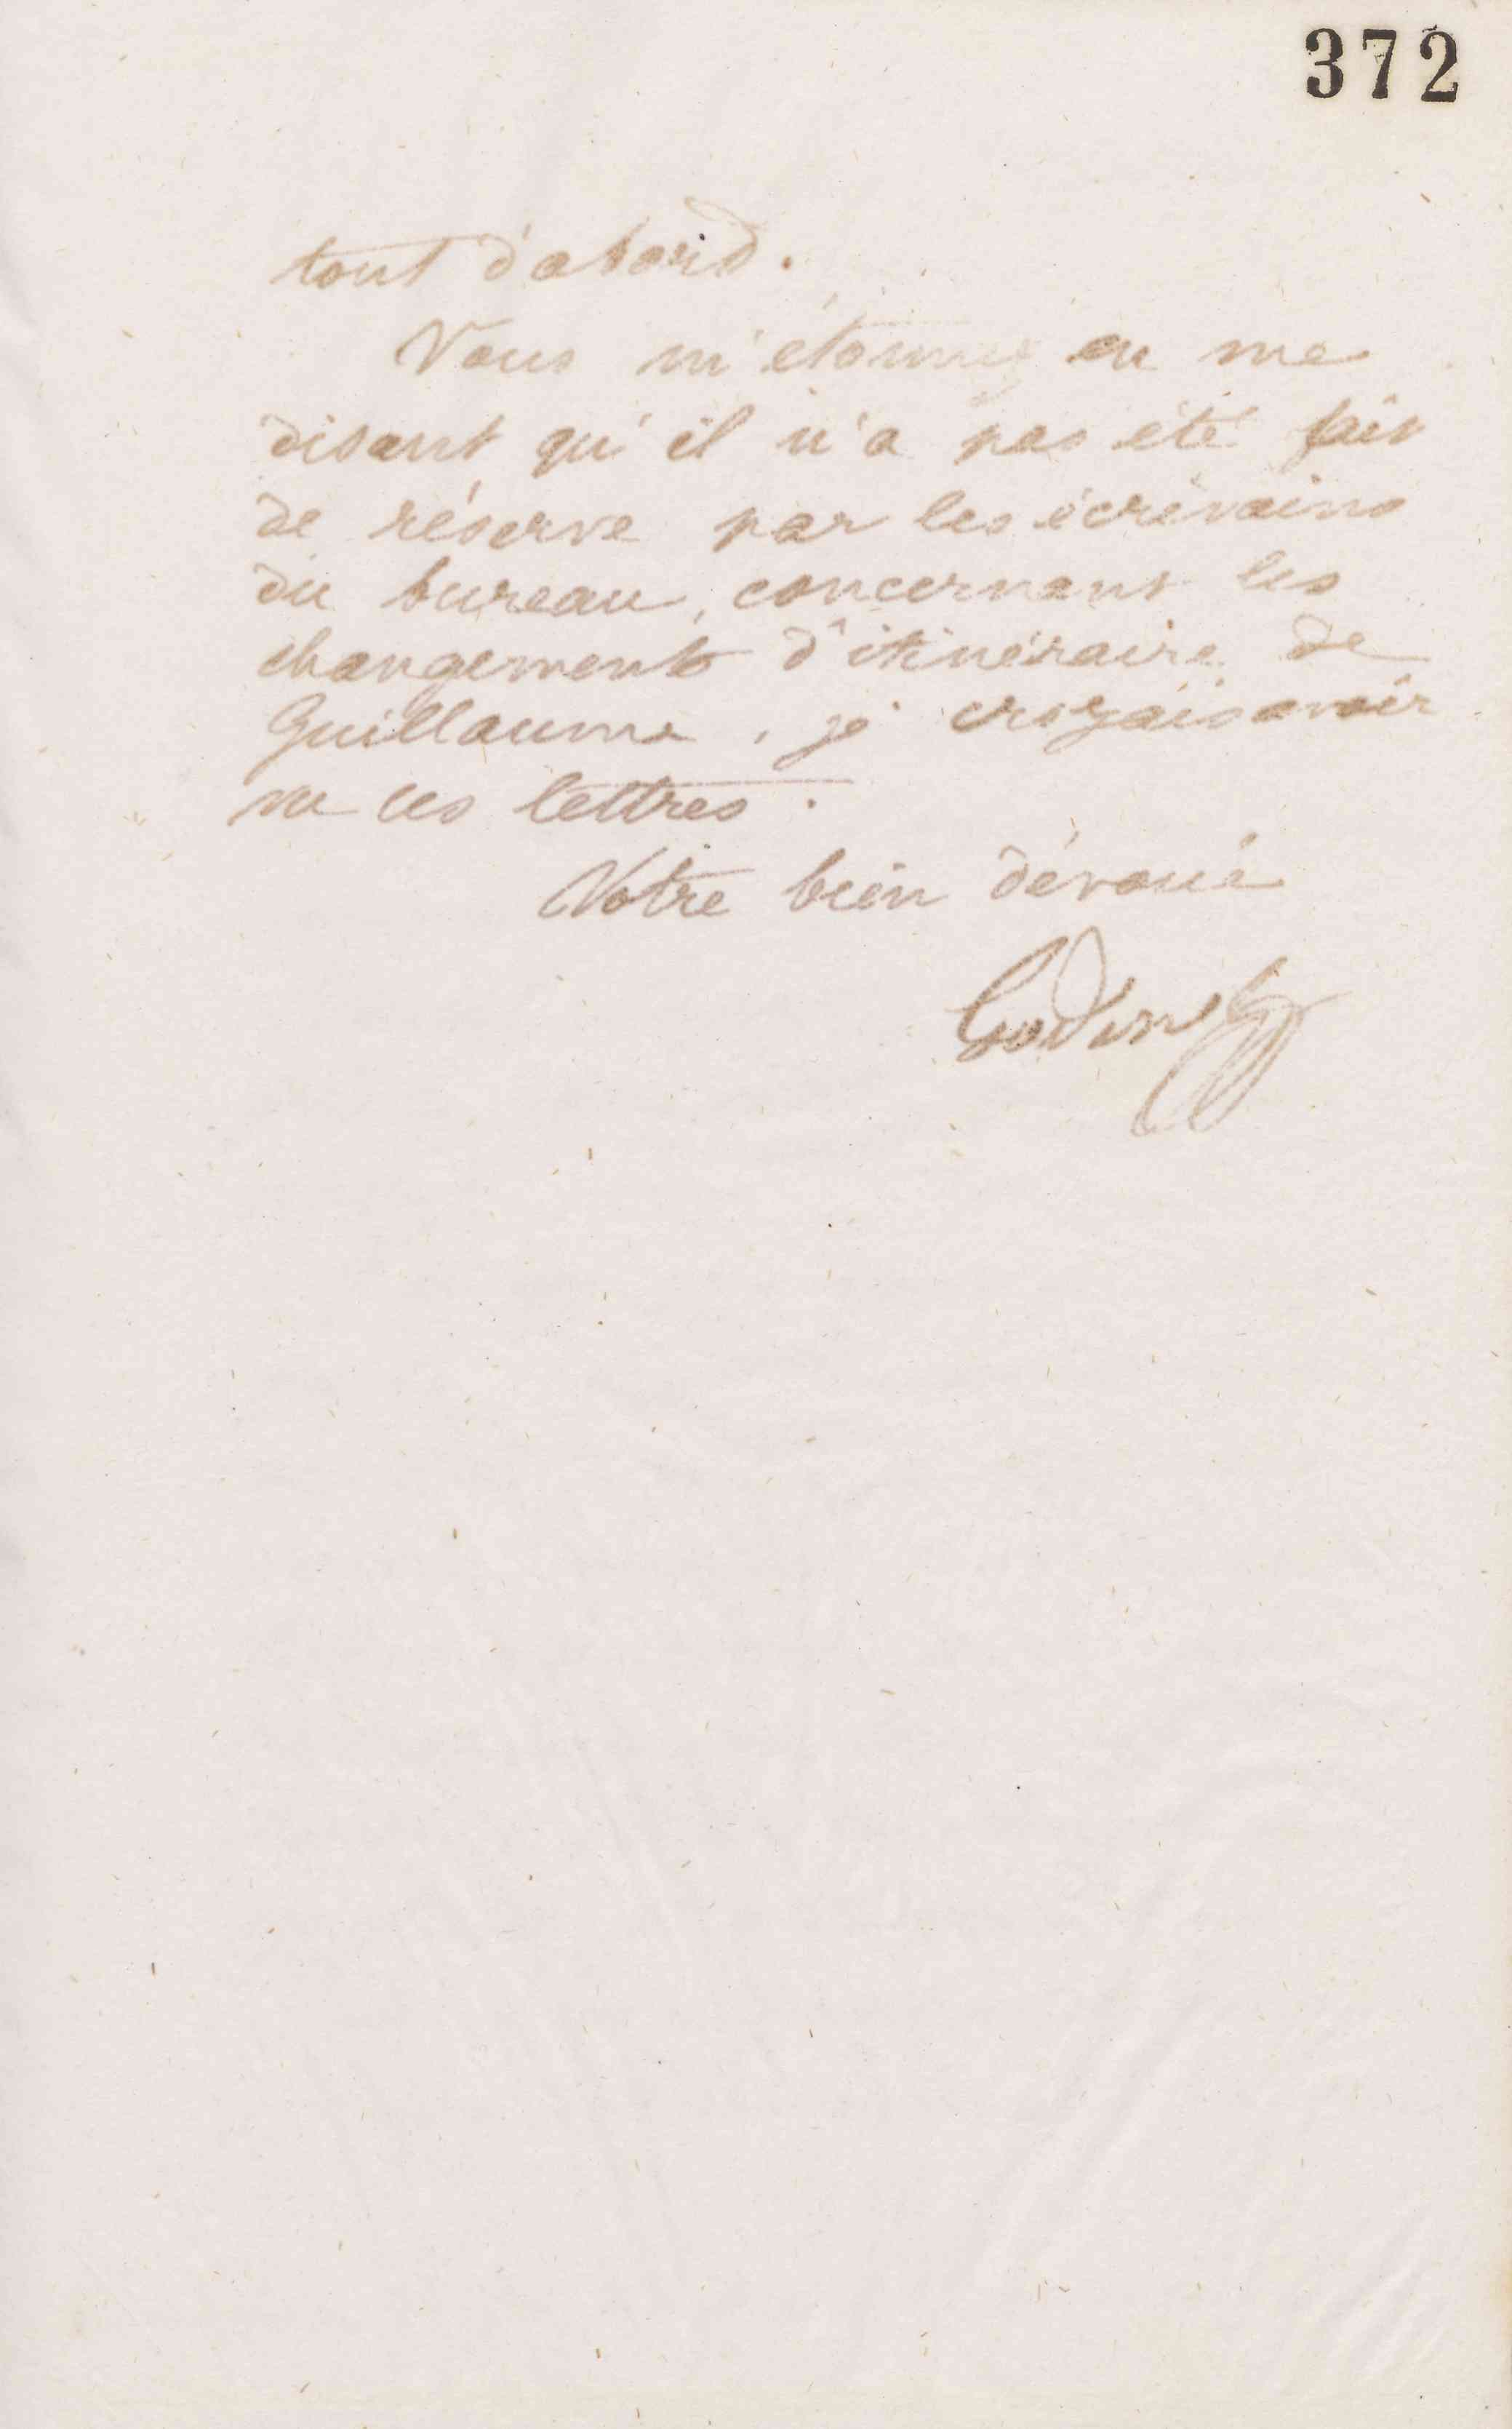 372
tout d'abord.
Vous m'étonnez en me
disant qu'il n'a pas été fait
de réserve par les écrivains
du bureau, concernant les
changements d'itinéraire de
Guillaume, je croyais avoir
vu ces lettres.
Votre bien dévoué
Godin